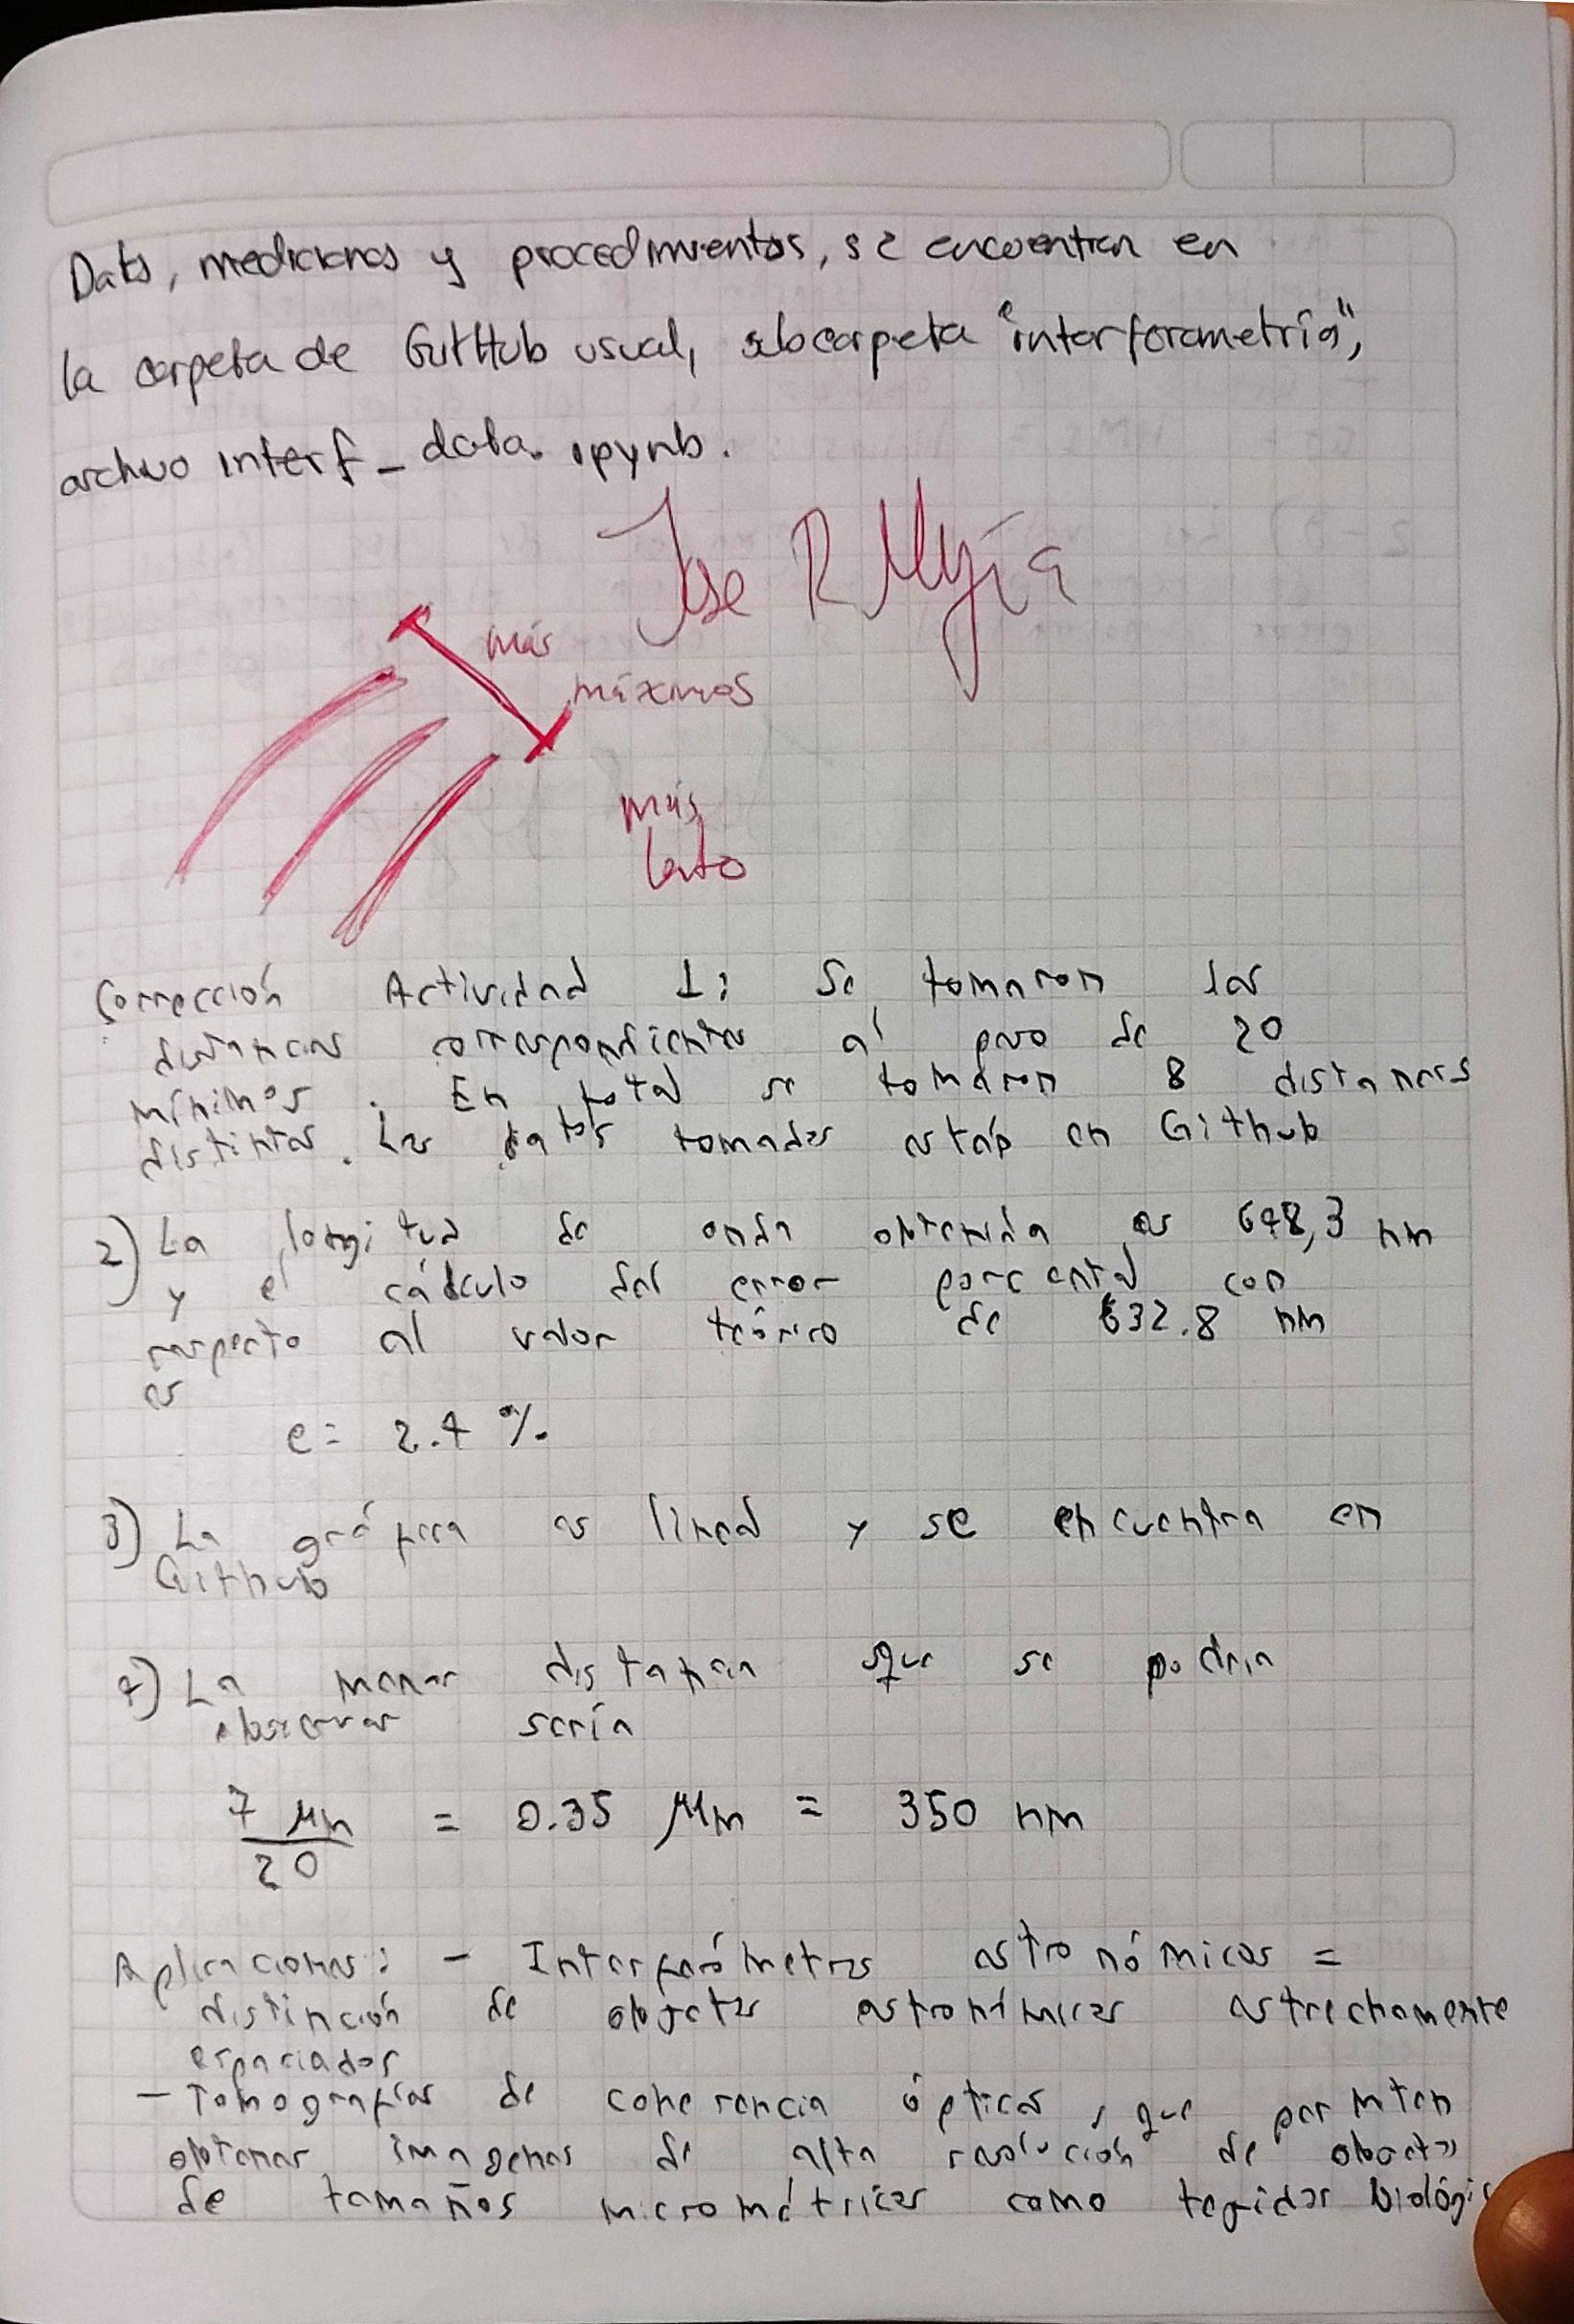 Datos, mediciones y procedimientos, se encuentran en
la carpeta de GitHub usual, subcarpeta "interferometría",
archivo interf_data.ipynb.
Jose R Mejía
más
máximos
más
lento
Corrección Actividad 1: Se tomaron las
distancias correspondientes al paso de 20
mínimos. En total se tomaron 8 distancias
distintas. Los datos tomados están en Github
2) La longitud de onda obtenida es 648,3 nm
y el cálculo del error porcental con
respecto al valor teórico de 632.8 nm
es
e = 2.4 %.
3) La gráfica es lineal y se encuentra en
Github
4) La menor distancia que se podria
observar sería
7 μm / 20 = 0.35 μm = 350 nm
Aplicaciones: - Interferómetros astronómicos =
distinción de objetos astronómicos estrechamente
espaciados
- Tomografías de coherencia óptica, que permiten
obtener imagenes de alta resolución de objetos
de tamaños micrométricos como tegidos biológic